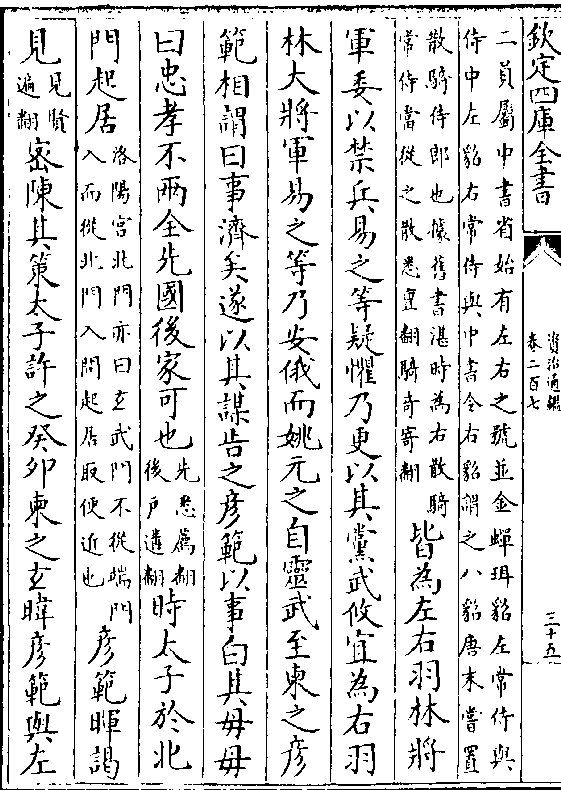 欽定四庫全書
資治通鑑
卷二百七
三十五
二員屬中書省始有左右之號並金蟬珥貂左常侍與
侍中左貂右常侍與中書令右貂謂之八貂唐末嘗置
散騎侍郎也據舊書湛時為右散騎
常侍當從之散悉亶翻騎奇寄翻
皆為左右羽林將
軍委以禁兵易之等疑懼乃更以其黨武攸宜為右羽
林大將軍易之等乃安俄而姚元之自靈武至柬之彦
範相謂曰事濟矣遂以其謀告之彦範以事白其母母
曰忠孝不兩全先國後家可也
先悉薦翻
後戶遘翻
時太子於北
門起居
洛陽宫北門亦曰玄武門不從端門
入而從北門入問起居取便近也
彦範暉謁
見
見賢
遍翻
宻陳其策太子許之癸卯柬之玄暐彦範與左